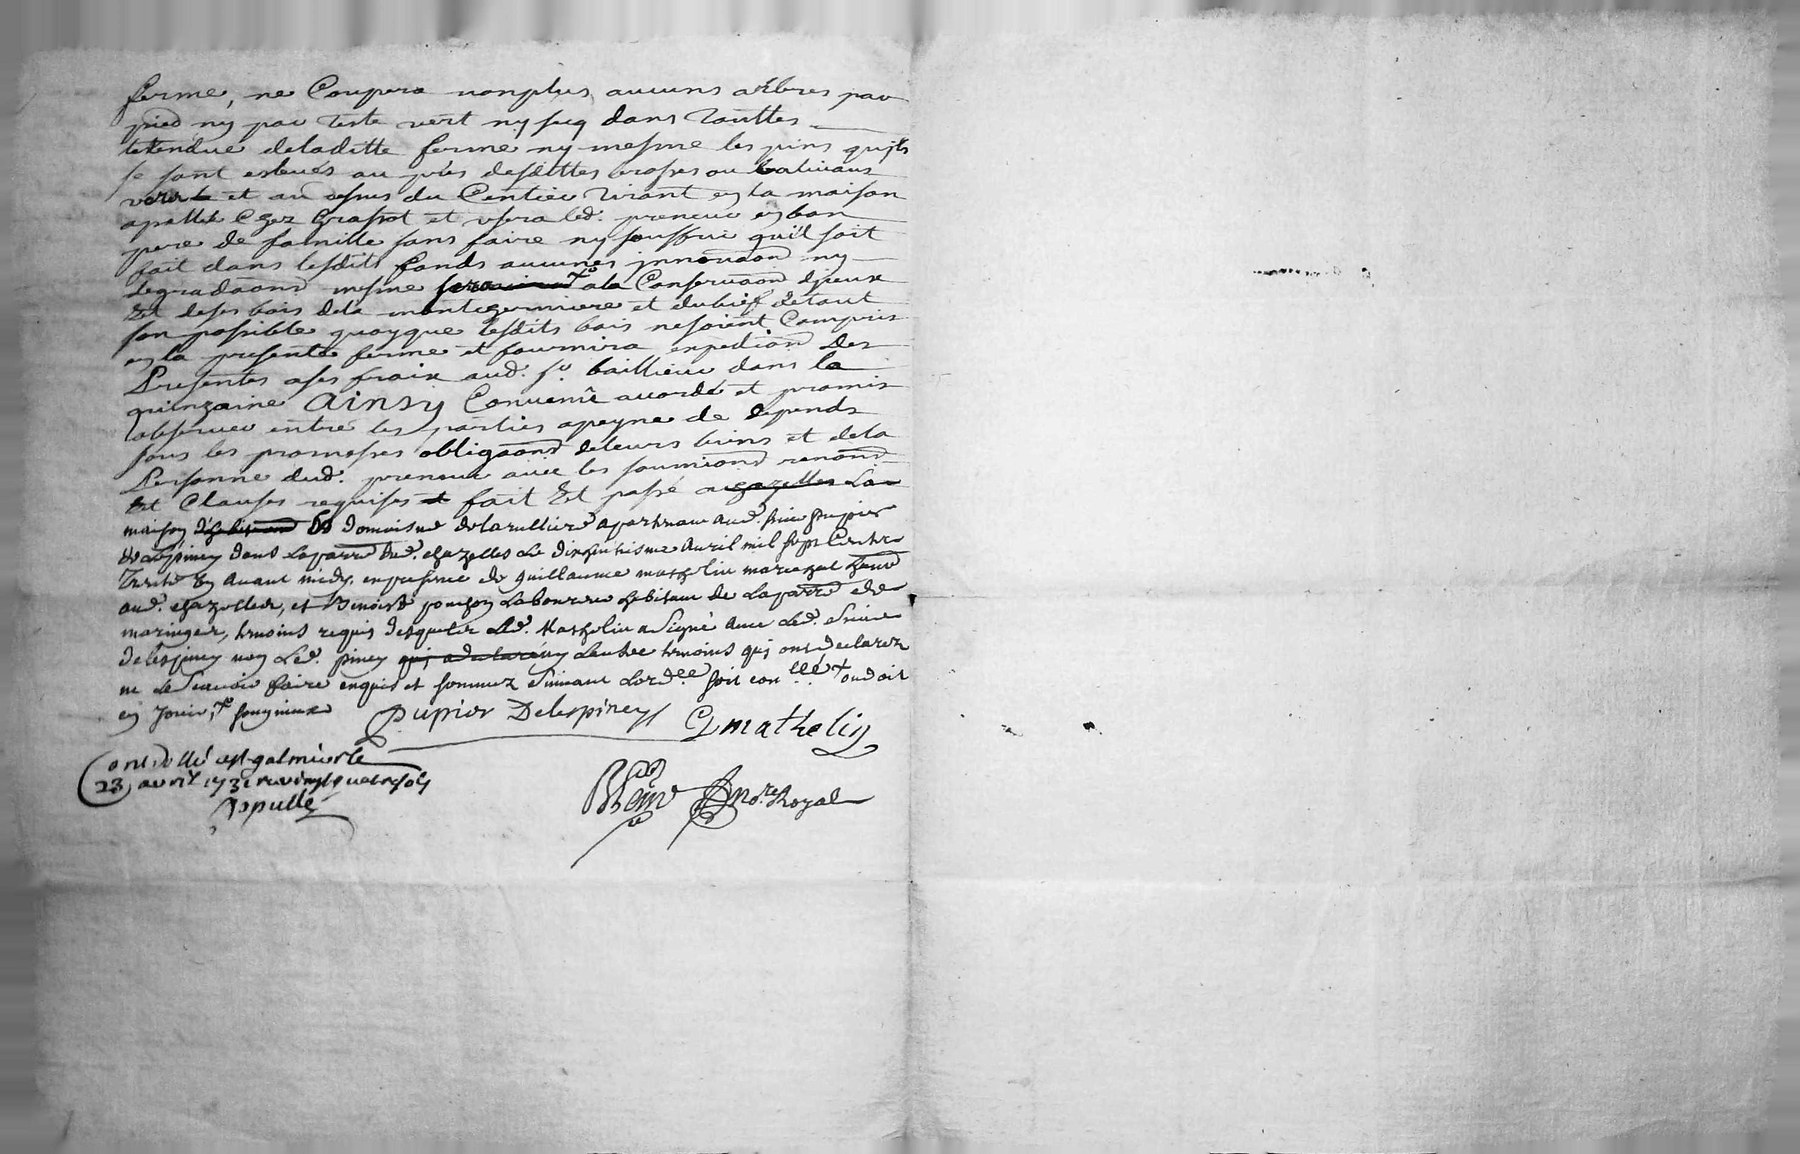 ferme, ne Coupera nonplus aucuns arbres par
pied ny par teste vert ny secq dans touttes
letendue deladitte ferme ny mesme les pins quils
se sont esleués au près desdittes ou baliuaux
et au dessus du Centier tirant en la maison
apellée Chez Grassot et usera led. preneur en bon
pere de famille sans faire ny souffrir qu'il soit
fait dans lesdits fonds aucunes innouaon ny
degradaons mesme a la Conseruaon diceux
Et deses bois dela montegonniere et dubief detout
son possible quoyque lesdits bois nesoient Compris
en la presente ferme et fournira expedion Des
Presentes ases fraix aud. sr. bailleur dans la
quinzaine Ainsy Conuenû acordé et promis
obseruer entre les parties apeyne de depends
sous les promesses obligaons deleurs biens et dela
Personne dud. preneur auec les soumions renons
Et Clauses requises fait Et passé a chazelles La
maison domaine delarulliere apartenant aud. sieur pupier
delespiney dans Laparr. dud. chazelles Le dixhuitiesme Auril mil sept Cents
Trente Un auant midy, en presence de guillaume mathelin marechal
aud. chazelles, et Benoist ponchon Laboureur habitant de Laparr. de
maringes, temoins requis desquels Led. Mathelin a signé auec Led. Sieur
delespiney non Led. piney qui a declaré ny Lautre temoins qui ont declarez
ne Le scauoir faire enquis et sommez Suiuant Lord.ce soit con.llé ou doit
en Jouir,
Pupier Delespiney G mathelin
Controllé a st galmier le
23 auril 1731 r. uingt quatre sols
nore. Royal